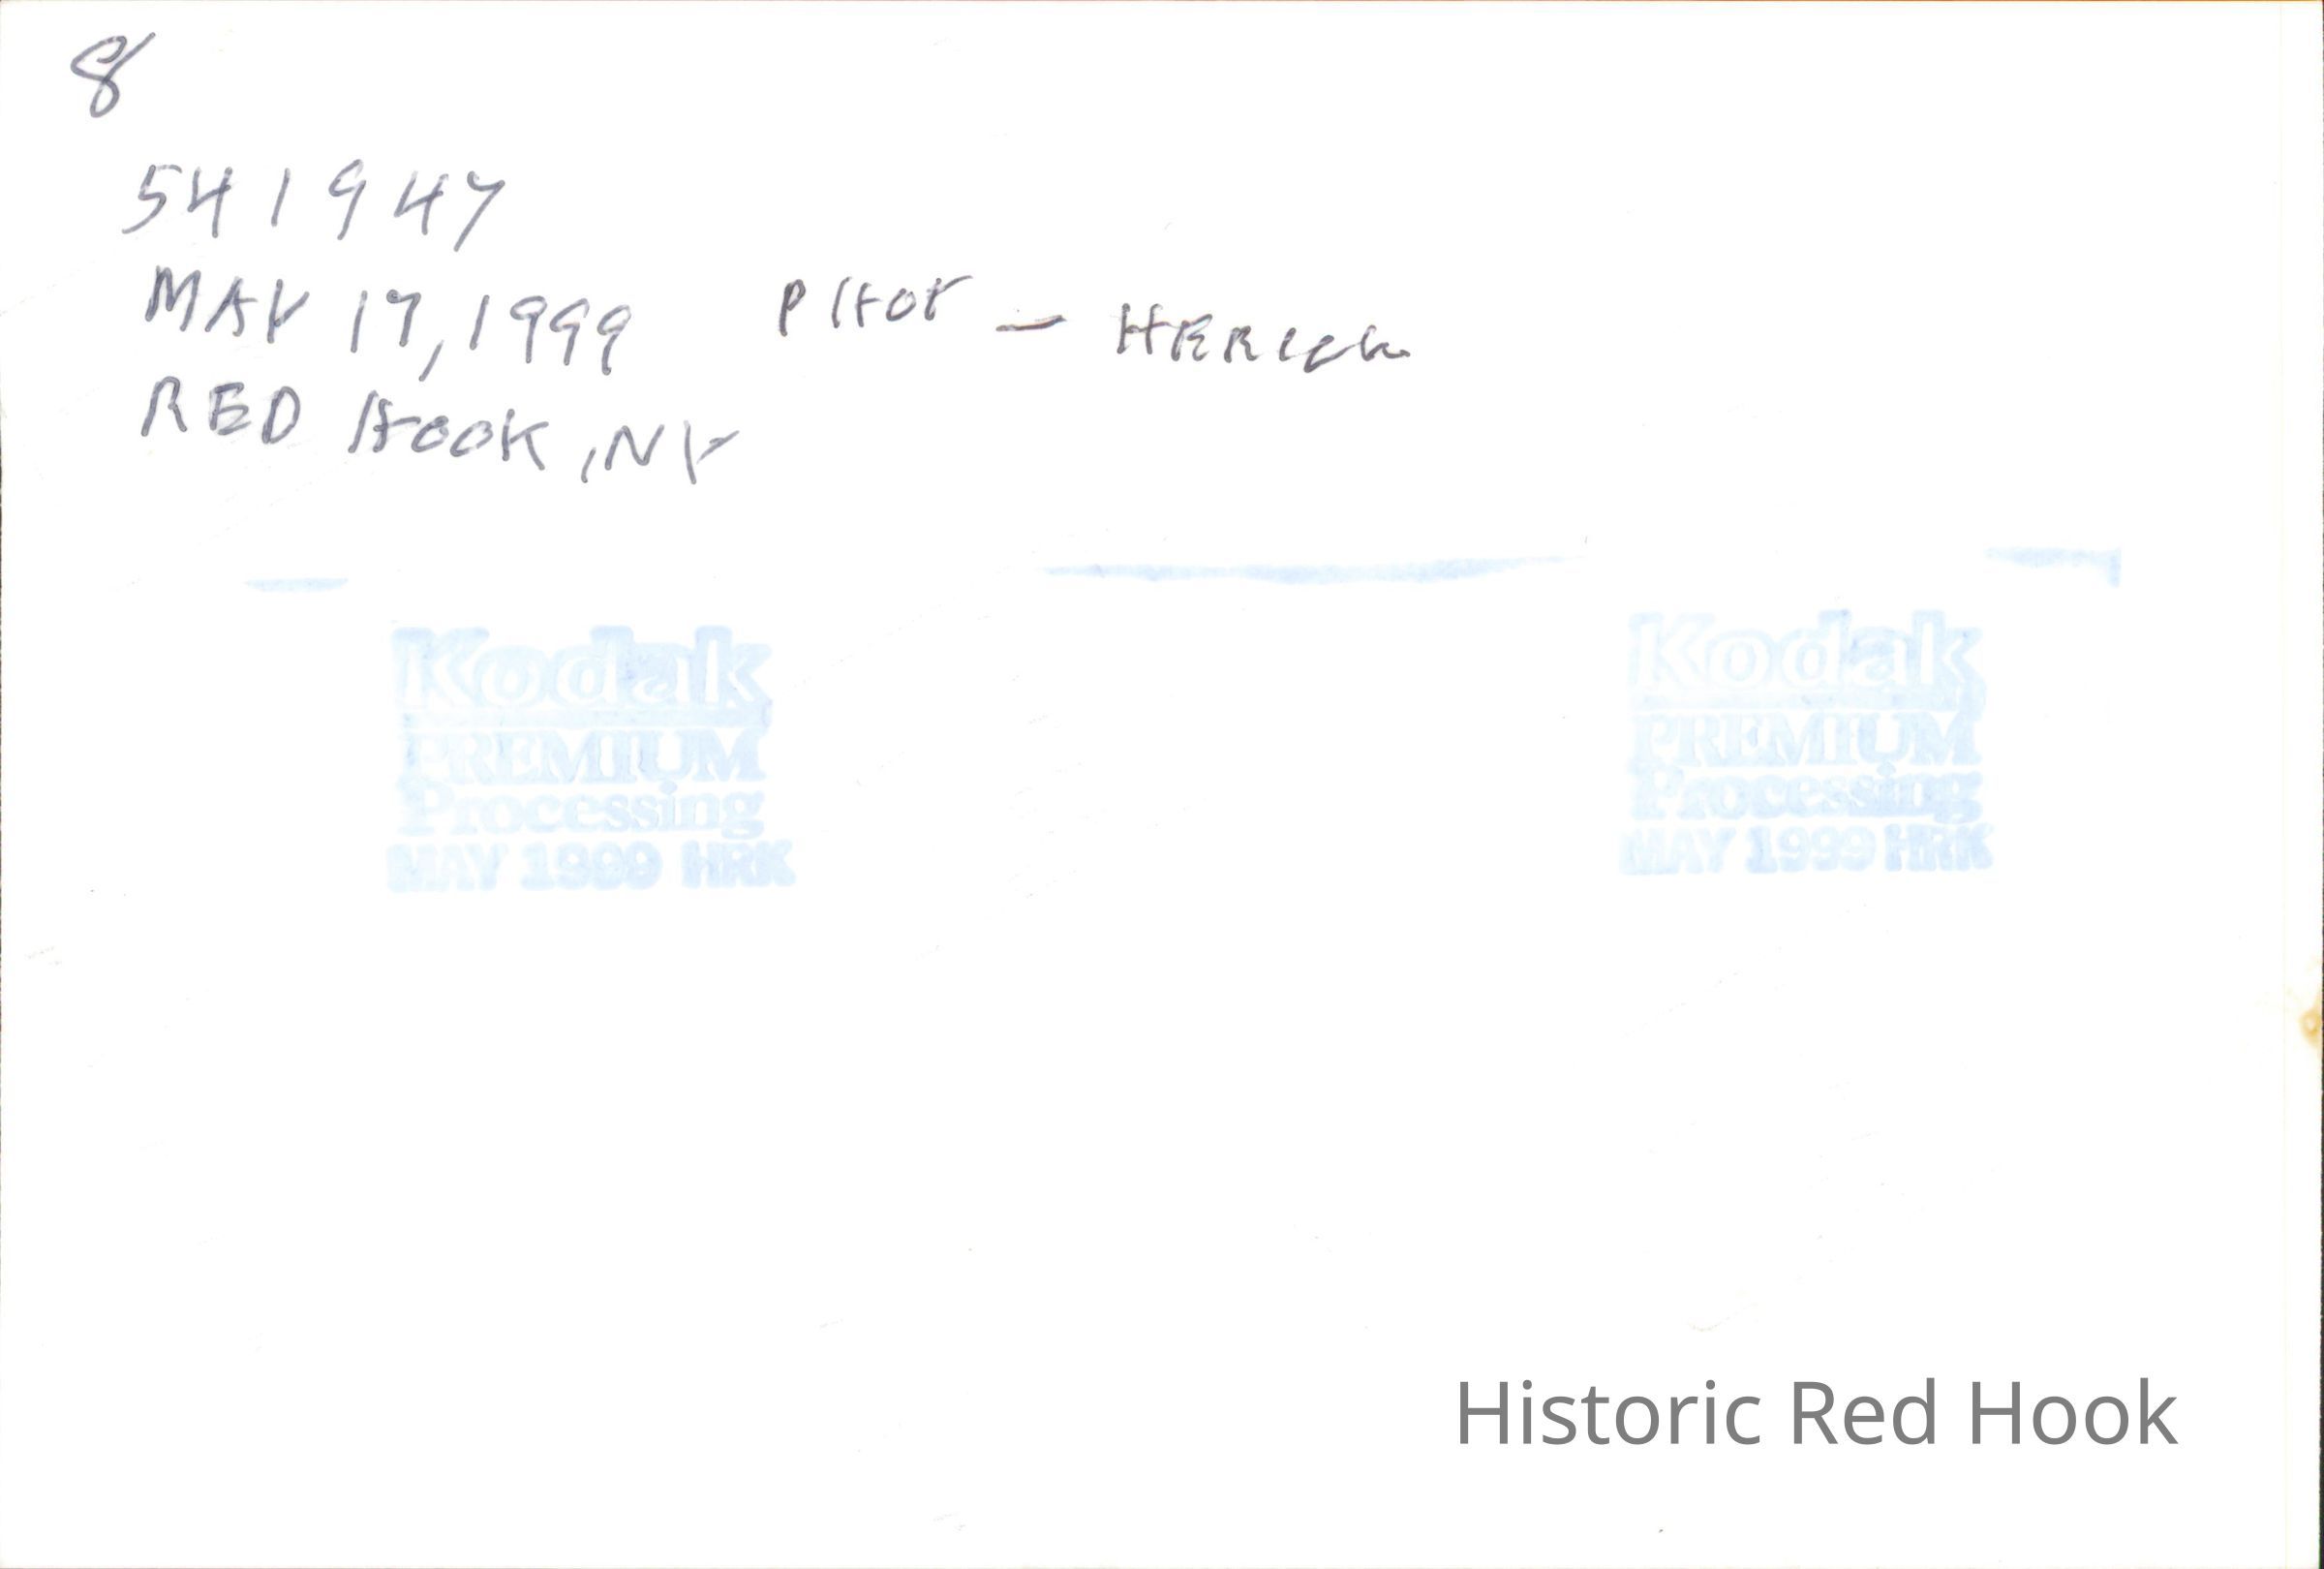 8
541947
MAY 17, 1999 PHOT — HERRICK
RED HOOK, NY
Kodak
PREMIUM
Processing
MAY 1999 HRK
Kodak
PREMIUM
Processing
MAY 1999 HRK
Historic Red Hook